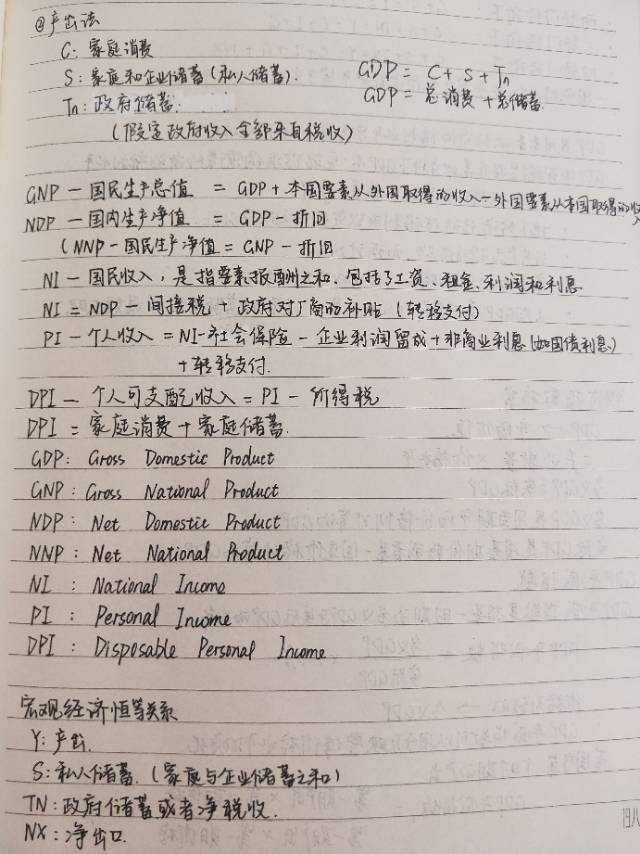 ②产出法
C: 家庭消费
S: 家庭和企业储蓄(私人储蓄). GDP = C + S + Tn
Tn: 政府储蓄. GDP = 总消费 + 总储蓄.
(假定政府收入全部来自税收)
GNP — 国民生产总值 = GDP + 本国要素从外国取得的收入 — 外国要素从本国取得的收入
NDP — 国内生产净值 = GDP - 折旧
(NNP - 国民生产净值 = GNP - 折旧
NI — 国民收入, 是指要素报酬之和. 包括了工资、租金、利润和利息
NI = NDP - 间接税 + 政府对厂商的补贴 (转移支付)
PI — 个人收入 = NI - 社会保险 - 企业利润留成 + 非商业利息(如国债利息)
+ 转移支付.
DPI — 个人可支配收入 = PI - 所得税
DPI = 家庭消费 + 家庭储蓄.
GDP: Gross Domestic Product
GNP: Gross National Product
NDP: Net Domestic Product
NNP: Net National Product
NI: National Income
PI: Personal Income
DPI: Disposable Personal Income
宏观经济恒等关系
Y: 产出.
S: 私人储蓄. (家庭与企业储蓄之和)
TN: 政府储蓄或者净税收.
NX: 净出口.